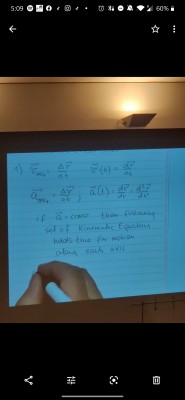 5:09
60%
1) v⃗avg = Δr⃗/Δt    v⃗(t) = dr⃗/dt
a⃗avg = Δv⃗/Δt ; a⃗(t) = dv⃗/dt = d²r⃗/dt²
if a⃗ = const then following
set of Kinematic Equations
holds true for motion
along each axis